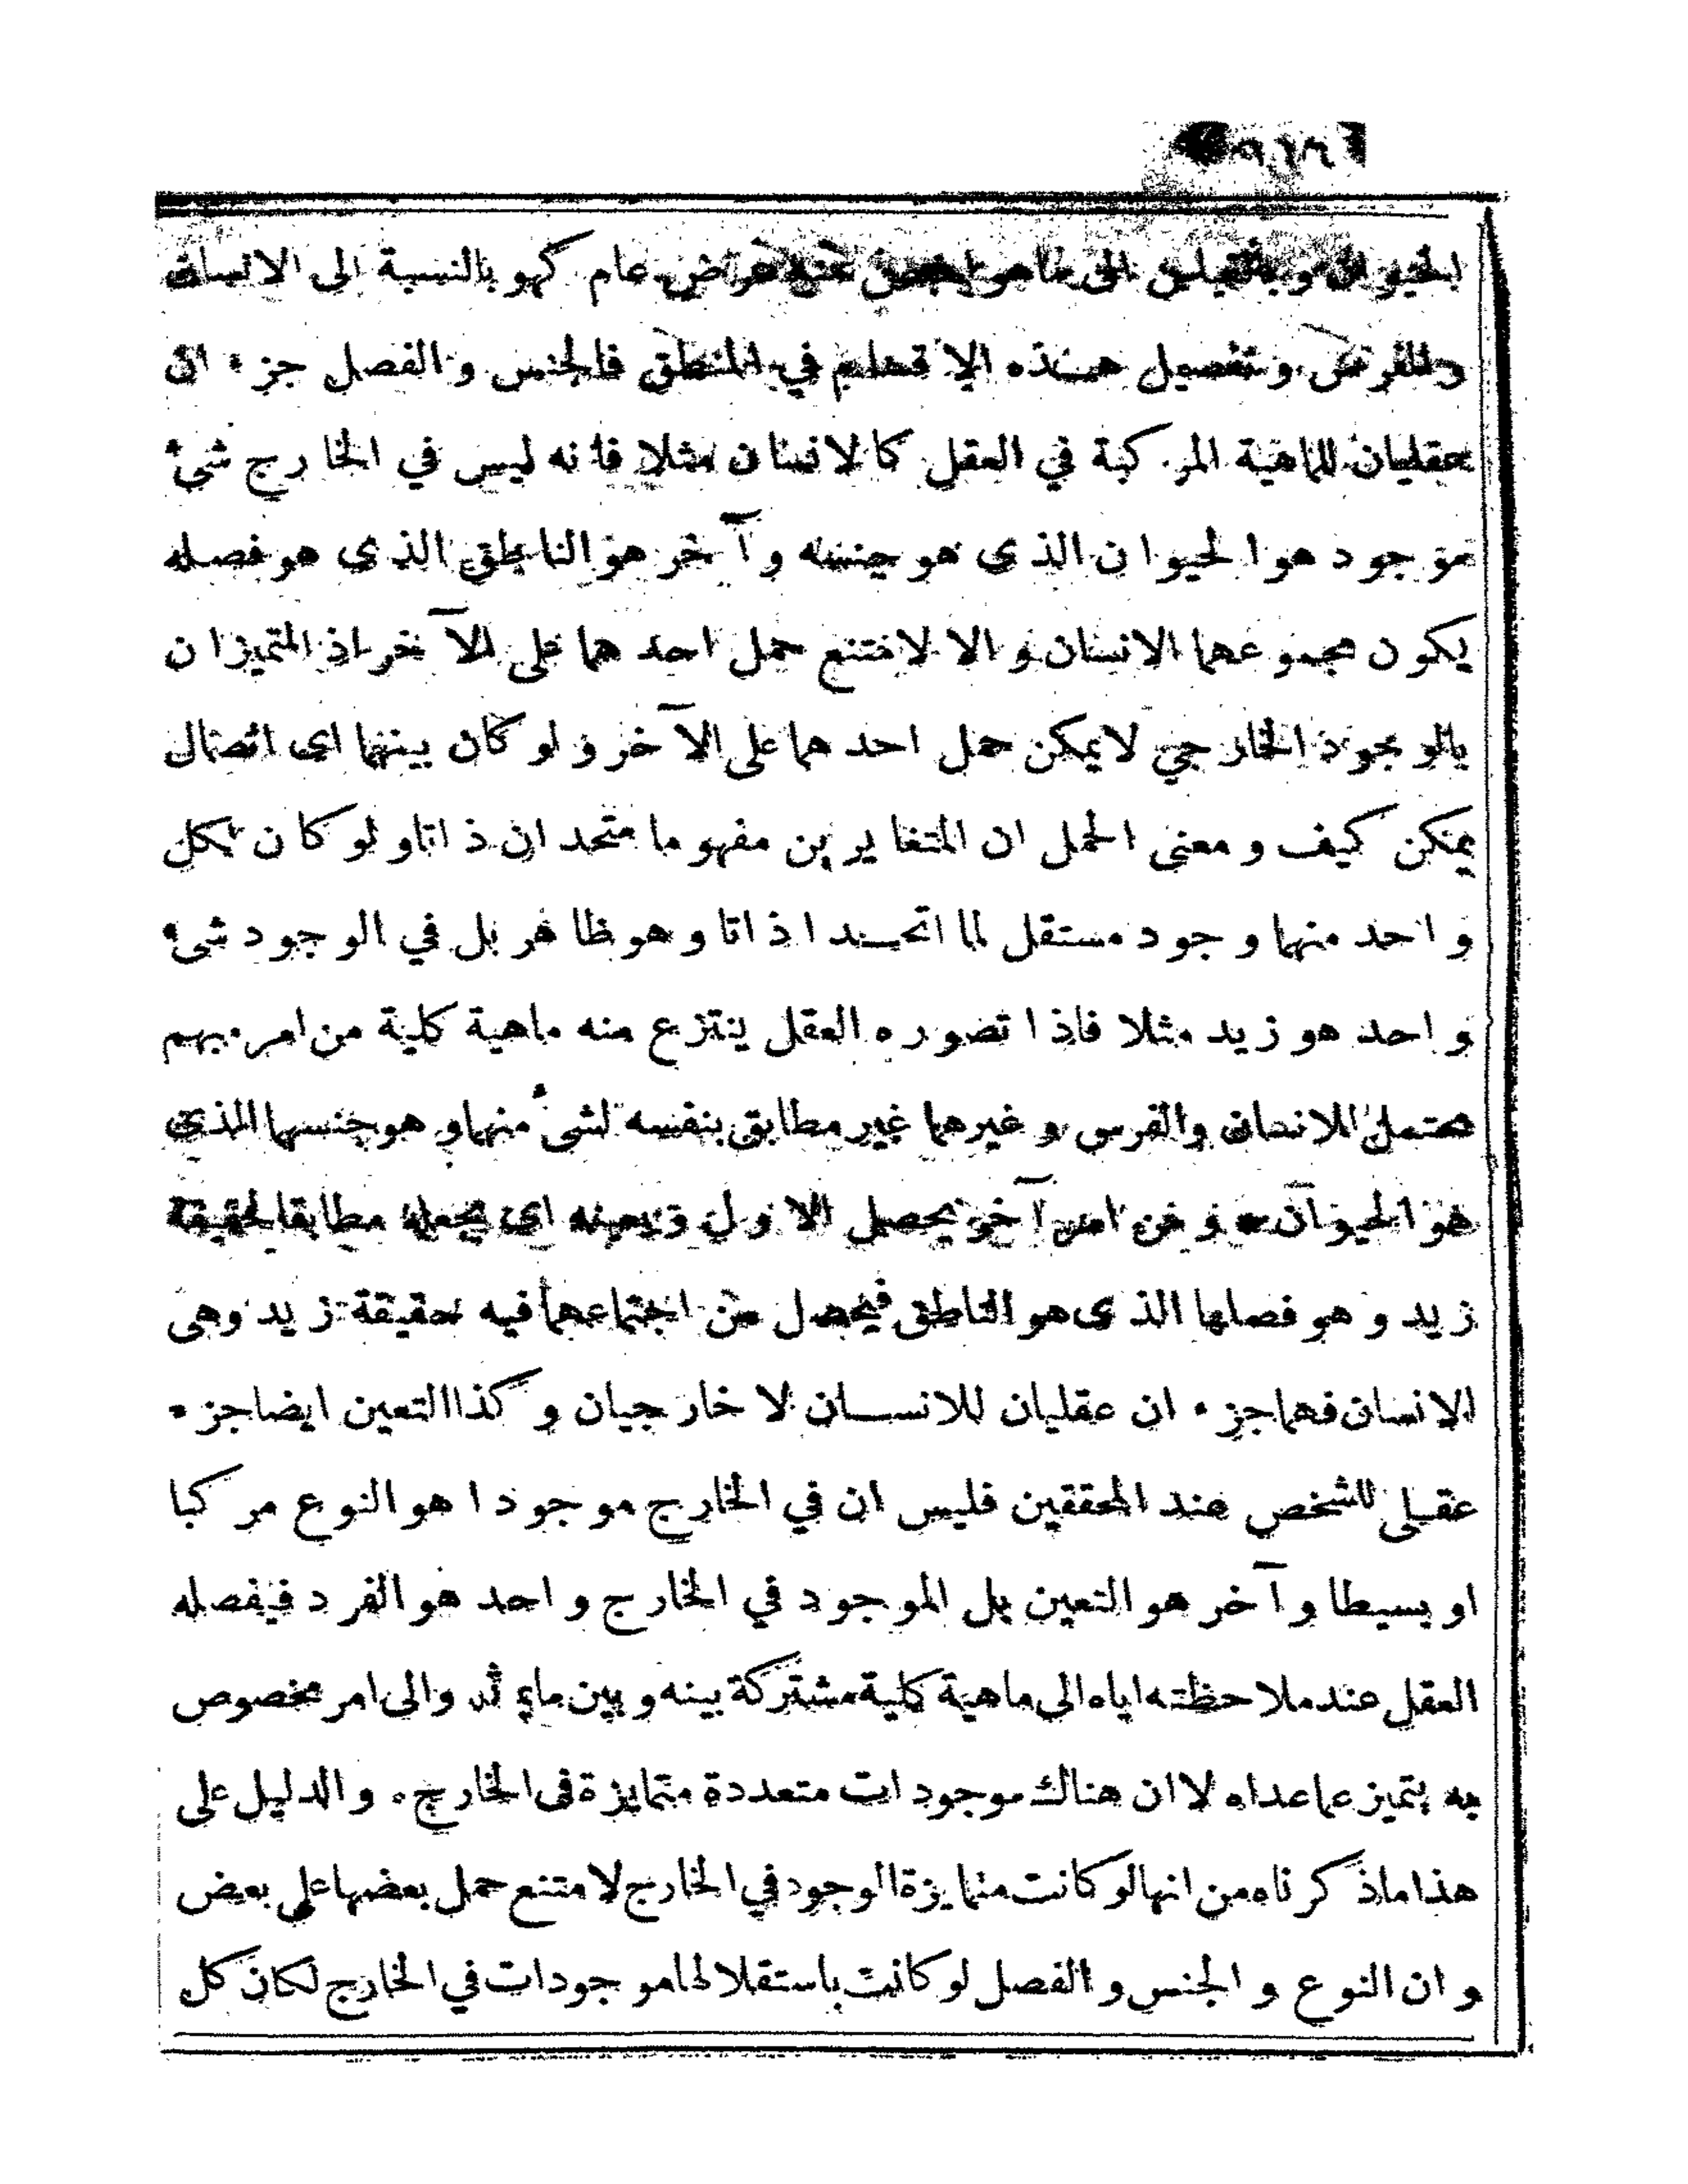 الحيوان وبالقياس الى ما هو اخص منه عرض عام كهو بالنسبة الى الانسان
والفرس وتفصيل هذه الاقسام في المنطق فالجنس والفصل جزء ان
عقليان للماهية المركبة في العقل كالانسان مثلا فانه ليس في الخارج شئ
موجود هو الحيوان الذى هو جنسه وآخر هو الناطق الذى هو فصله
يكون مجموعهما الانسان والا لامتنع حمل احدهما على الآخر اذ المتميزان
بالوجود الخارجي لايمكن حمل احدهما على الآخر ولو كان بينهما اى اتصال
يمكن كيف ومعنى الحمل ان المتغايرين مفهوما متحدان ذاتا ولو كان لكل
واحد منهما وجود مستقل لما اتحدا ذاتا وهو ظاهر بل في الوجود شئ
واحد هو زيد مثلا فاذا تصوره العقل ينتزع منه ماهية كلية من امر مبهم
محتمل للانسان والفرس وغيرهما غير مطابق بنفسه لشئ منهما وهو جنسها الذى
هو الحيوان ومن امر آخر يحصل الاول ويعينه اى يجعله مطابقا لحقيقة
زيد وهو فصلها الذى هو الناطق فيحصل من اجتماعهما فيه حقيقة زيد وهى
الانسان فهما جزء ان عقليان للانسان لا خارجيان وكذا التعين ايضا جزء
عقلى للشخص عند المحققين فليس ان في الخارج موجودا هو النوع مركبا
او بسيطا وآخر هو التعين بل الموجود في الخارج واحد هو الفرد فيفصله
العقل عند ملاحظته اياه الى ماهية كلية مشتركة بينه وبين ما يماثله والى امر مخصوص
به يتميز عما عداه لا ان هناك موجودات متعددة متمايزة فى الخارج. والدليل على
هذا ما ذكرناه من انها لو كانت متمايزة الوجود في الخارج لامتنع حمل بعضها على بعض
وان النوع والجنس والفصل لو كانت باستقلالها موجودات في الخارج لكان كل